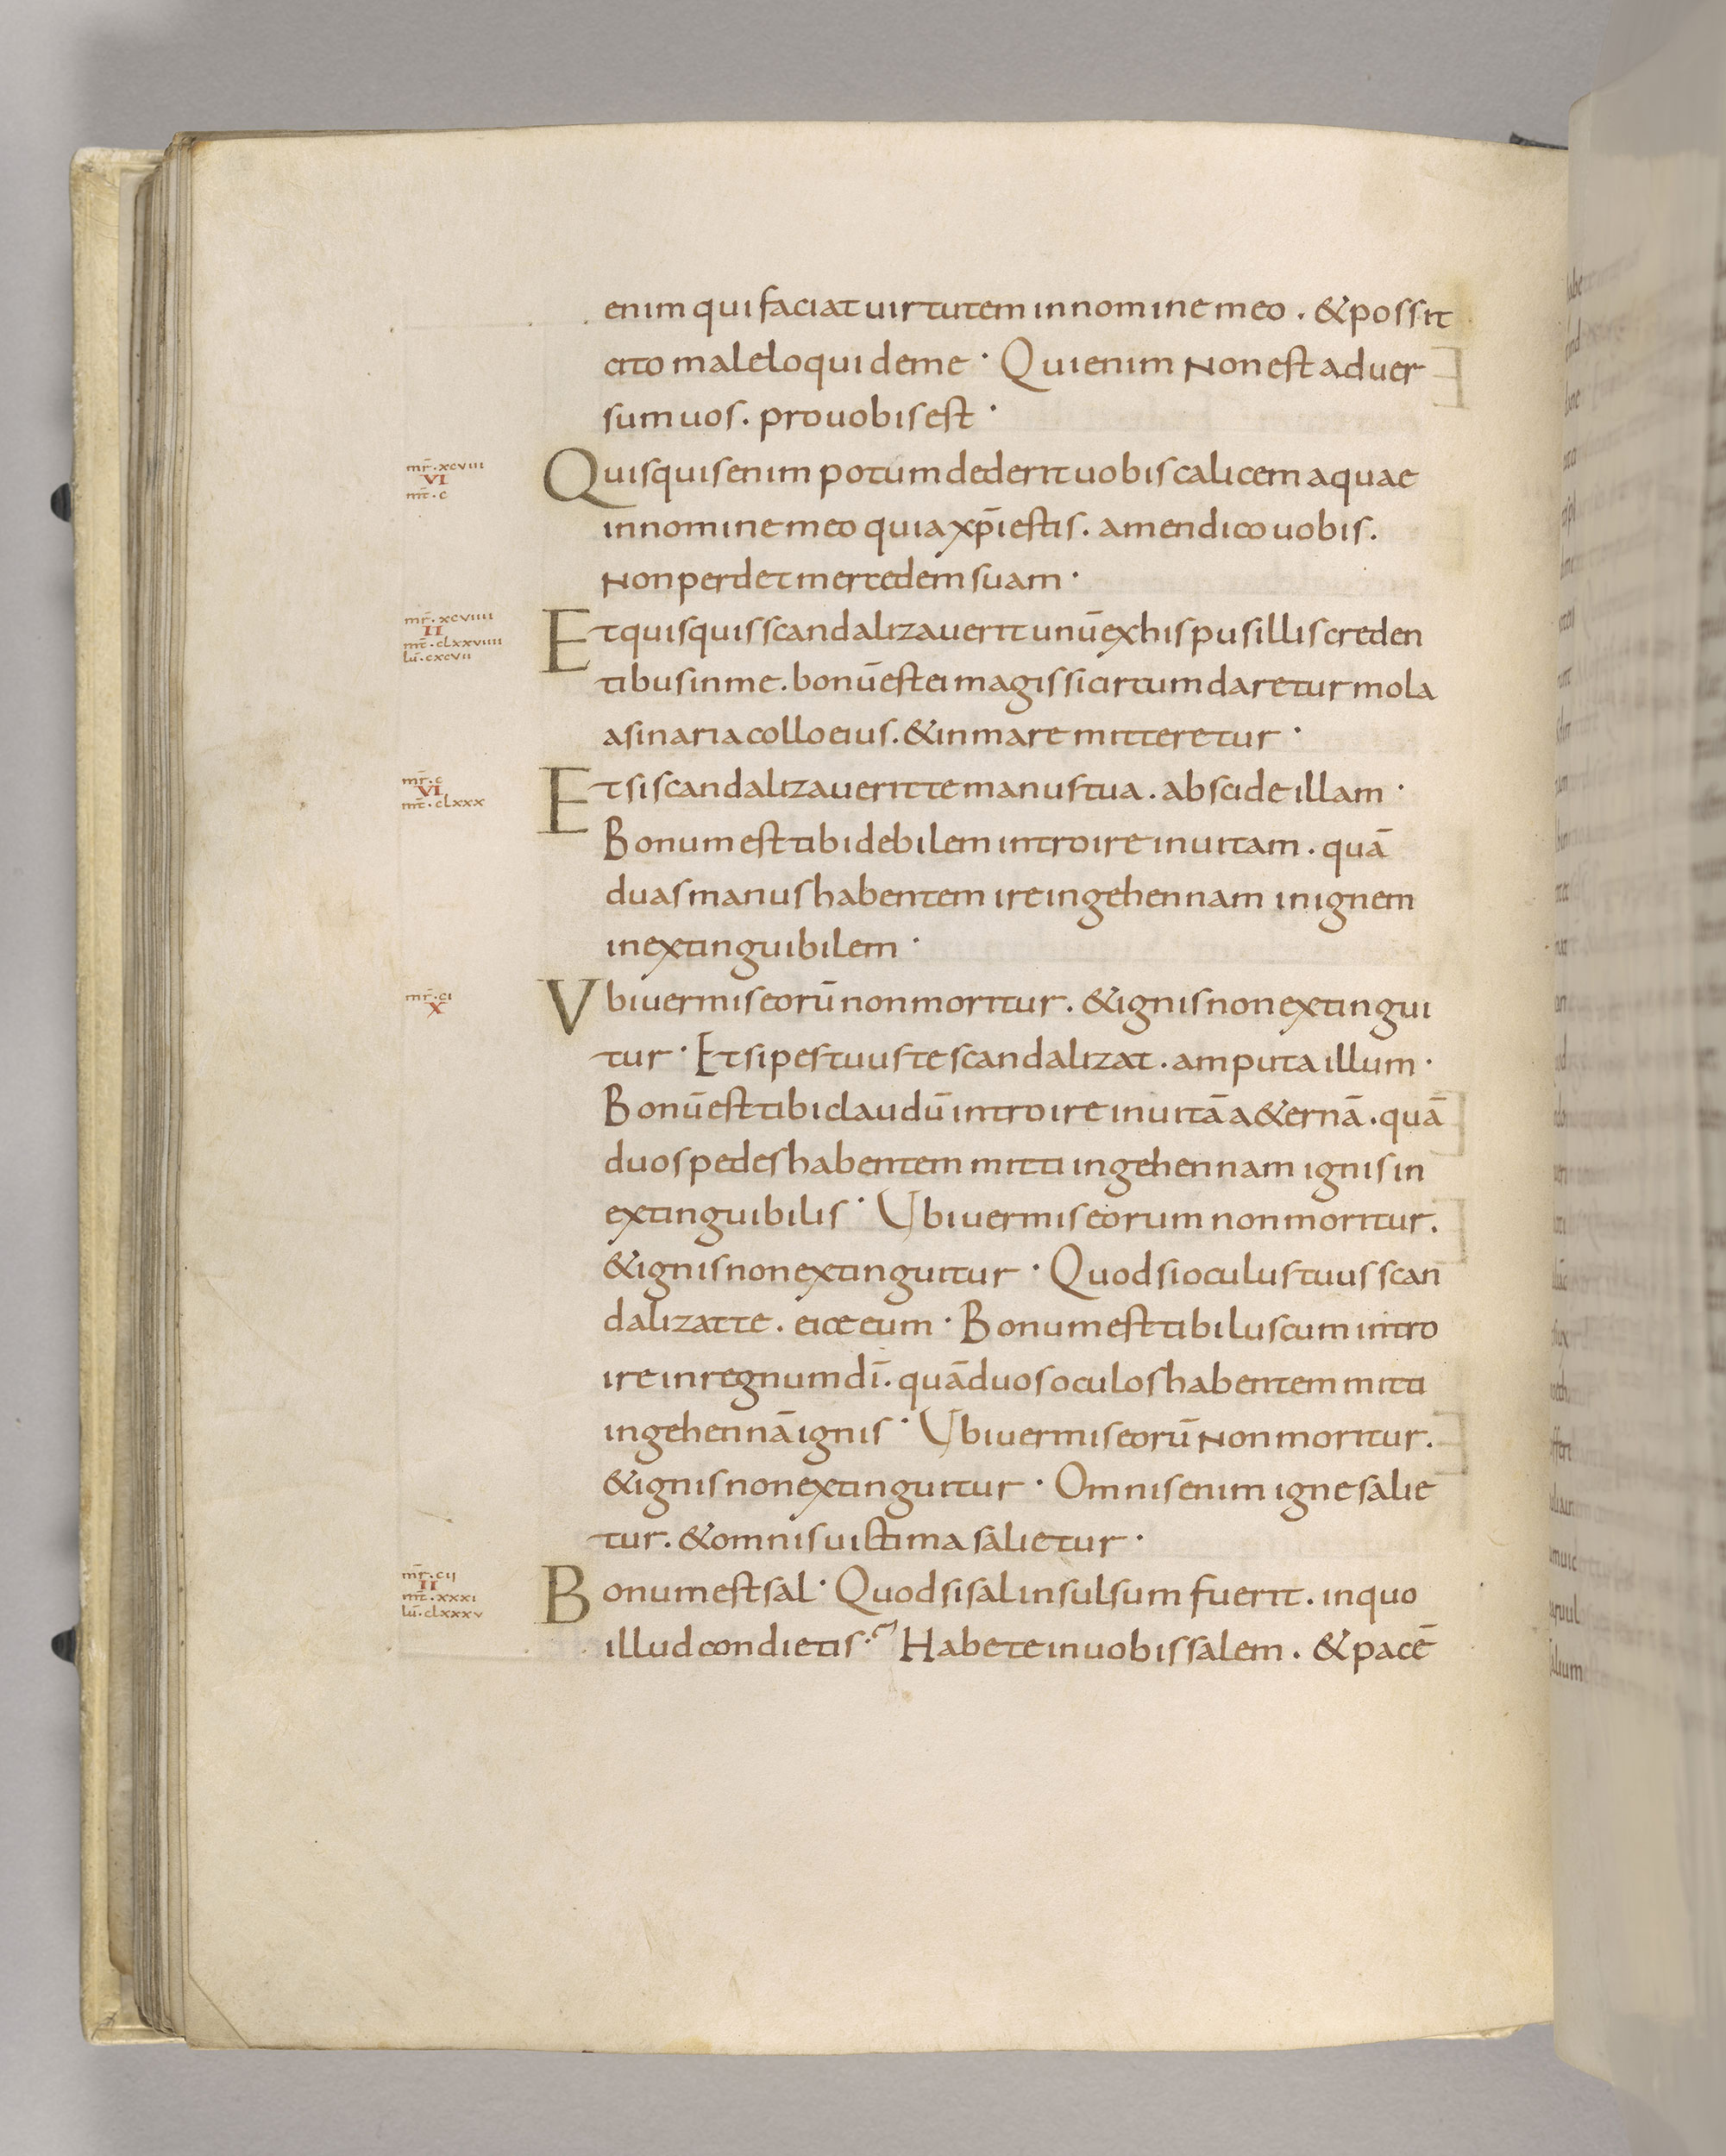 enim qui faciat uirtutem in nomine meo . & possit
cito male loqui de me · Qui enim Non est aduer
sum uos . pro uobis est ·
mr̄ · xcviii
VI
mt̄ · c
Quisquis enim potum dederit uobis calicem aquae
in nomine meo quia xp̄i estis . amen dico uobis .
Non perdet mercedem suam ·
mr̄ · xcviiii
II
mt̄ · clxxviiii
lū · cxcvii
Et quisquis scandalizauerit unū ex his pusillis creden
tibus in me . bonū est ei magis si circumdaretur mola
asinaria collo eius . & in mare mitteretur ·
mr̄ · c
VI
mt̄ · clxxx
Et si scandalizauerit te manus tua . abscide illam ·
Bonum est tibi debilem introire in uitam . quā
duas manus habentem ire in gehennam in ignem
inextinguibilem ·
mr̄ · ci
X
Vbi uermis eorū non moritur . & ignis non extingui
tur · Et si pes tuus te scandalizat . amputa illum ·
Bonū est tibi claudū introire in uitā a&ernā . quā
duos pedes habentem mitti in gehennam ignis in
extinguibilis · Vbi uermis eorum non moritur .
& ignis non extinguitur · Quod si oculus tuus scan
dalizat te . eice eum · Bonum est tibi luscum intro
ire in regnum dī . quā duos oculos habentem mitti
in gehennā ignis · Vbi uermis eorū Non moritur .
& ignis non extinguitur · Omnis enim igne salie
tur . & omnis uictima salietur ·
mr̄ · cii
II
mt̄ · xxxi
lū · clxxxv
Bonum est sal · Quod si sal insulsum fuerit . in quo
illud condietis ·~ Habete in uobis salem . & pacē